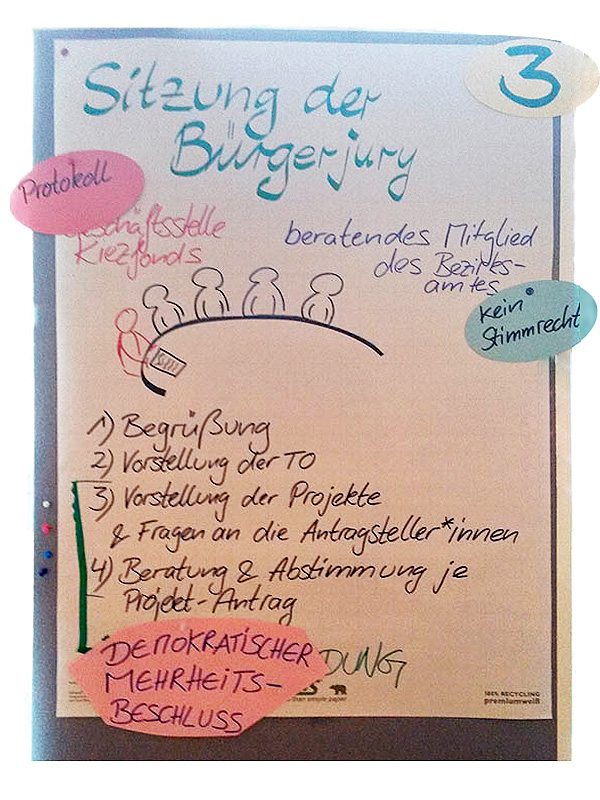 3
Sitzung der
Bürgerjury
Protokoll
Geschäftsstelle
Kiezfonds
beratendes Mitglied
des Bezirks-
amtes
kein
Stimmrecht
1) Begrüßung
2) Vorstellung der TO
3) Vorstellung der Projekte
& Fragen an die Antragsteller*innen
4) Beratung & Abstimmung je
Projekt-Antrag
DEMOKRATISCHER
MEHRHEITS-
BESCHLUSS
DUNG
than simple paper
100% RECYCLING
premiumweiß